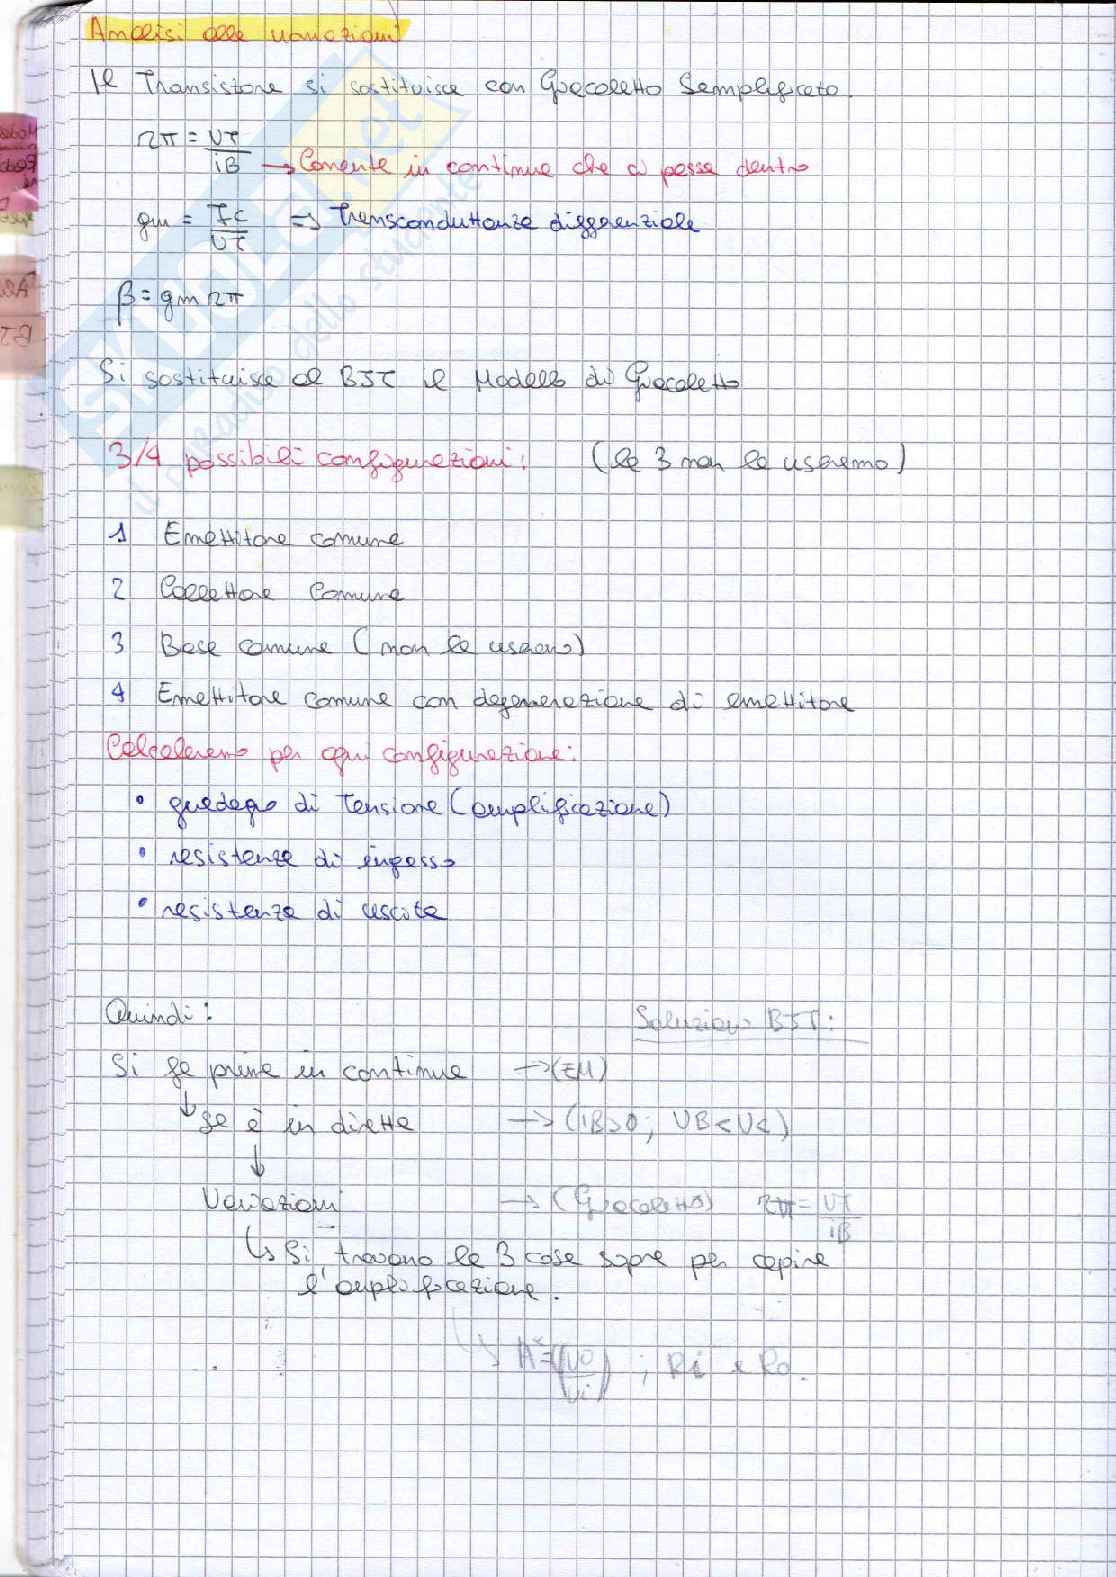 Analisi alle variazioni
Il Transistore si sostituisce con Giacoletto Semplificato.
rπ = VT / iB → Corrente in continua che ci passa dentro
gm = Ic / VT => Transconduttanza differenziale
β = gm rπ
Si sostituisce al BJT il Modello di Giacoletto
3/4 possibili configurazioni: (la 3 non la useremo)
1 Emettitore comune
2 Collettore Comune
3 Base comune (non la usiamo)
4 Emettitore comune con degenerazione di emettitore
Calcoleremo per ogni configurazione:
• guadagno di Tensione (amplificazione)
• resistenza di ingresso
• resistenza di uscita
Quindi: Soluzione BJT:
Si fa prima in continua → (EM)
↓ se è in diretta → (iB>0; VB<Vc)
↓
Variazioni → (Giacoletto) rπ = VT / iB
↳ Si trovano le 3 cose sopra per capire
l'amplificazione.
↳ A = (Vo / Vi) ; Ri e Ro.
SKUOLA.net
il paradiso dello studente